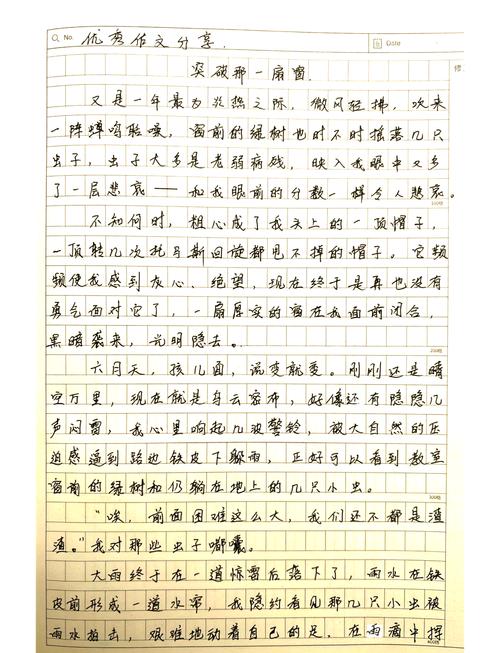 No. 优秀作文分享.
Date
突破那一扇窗.
又是一年最为炎热之际，微风轻拂，吹来
一阵蝉鸣聒噪，窗前的绿树也时不时摇落几只
虫子，虫子大多是老弱病残，映入我眼中又多
了一层悲哀——和我眼前的分数一样令人悲哀。
100格
不知何时，粗心成了我头上的一顶帽子，
一顶转几次托马斯回旋都甩不掉的帽子。它频
频使我感到灰心、绝望，现在终于是再也没有
勇气面对它了，一扇厚实的窗在我面前闭合，
黑暗袭来，光明隐去。
200格
六月天，孩儿面，说变就变。刚刚还是晴
空万里，现在就是乌云密布，好像还有隐隐几
声闷雷，我心里响起几波警铃，被大自然的压
迫感逼到路边铁皮下躲雨，正好可以看到教室
窗前的绿树和仍躺在地上的几只小虫。
300格
“唉，前面困难这么大，我们还不都是渣
渣。”我对那些虫子嘟囔。
大雨终于在一道惊雷后落下了，雨水在铁
皮前形成一道水帘，我隐约看见那几只小虫被
雨水拍击，艰难地动着自己的足，在雨滴中挥
400格